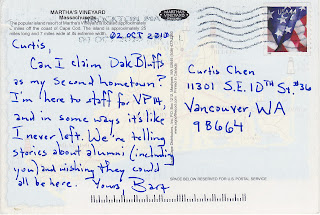 MARTHA'S VINEYARD
Massachusetts
The popular island resort of Martha's Vineyard is located approximately
miles off the coast of Cape Cod. The island is approximately 20
miles long and 7 miles wide at its extreme width.
02 OCT 2010
Curtis,
Can I claim Oak Bluffs
as my second hometown?
I'm here to staff for VPX,
and in some ways it's like
I never left. We're telling
stories about alumni (including
you) and wishing they could
all be here. Yours, Bart
MARTHA'S VINEYARD
USA
Curtis Chen
11301 S.E. 10TH St. #36
Vancouver, WA
98664
SPACE BELOW RESERVED FOR U.S. POSTAL SERVICE